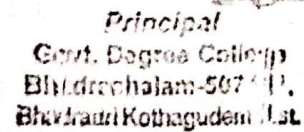 Principal
Govt. Degree College
Bhadrachalam-507
Bhadradri Kothagudem Dist.